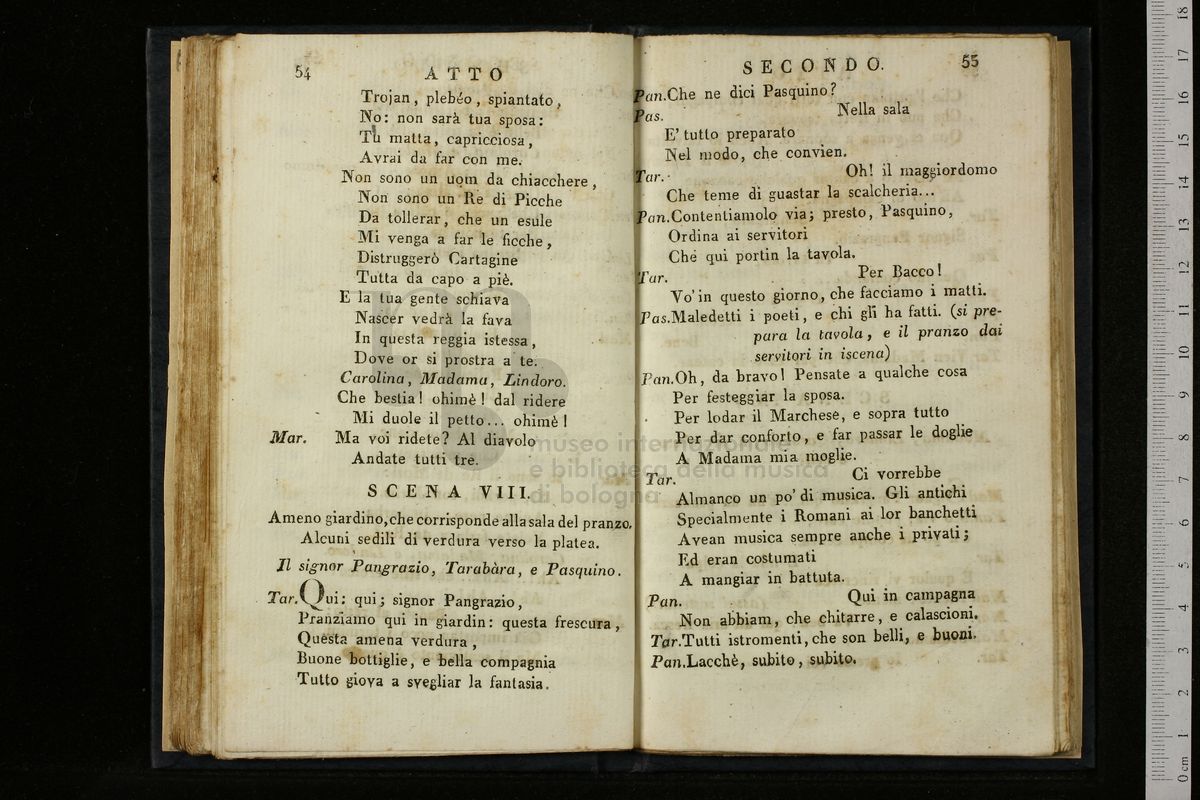 54
ATTO
Trojan, plebéo, spiantato,
No: non sarà tua sposa:
Tu matta, capricciosa,
Avrai da far con me.
Non sono un uom da chiacchere,
Non sono un Re di Picche
Da tollerar, che un esule
Mi venga a far le ficche,
Distruggerò Cartagine
Tutta da capo a piè.
E la tua gente schiava
Nascer vedrà la fava
In questa reggia istessa,
Dove or si prostra a te.
Carolina, Madama, Lindoro.
Che bestia! ohimè! dal ridere
Mi duole il petto... ohimè!
Mar. Ma voi ridete? Al diavolo
Andate tutti tre.
SCENA VIII.
Ameno giardino, che corrisponde alla sala del pranzo.
Alcuni sedili di verdura verso la platea.
Il signor Pangrazio, Tarabàra, e Pasquino.
Tar. Qui: qui; signor Pangrazio,
Pranziamo qui in giardin: questa frescura,
Questa amena verdura,
Buone bottiglie, e bella compagnia
Tutto giova a svegliar la fantasia.
SECONDO.
55
Pan. Che ne dici Pasquino?
Pas. Nella sala
E' tutto preparato
Nel modo, che convien.
Tar. Oh! il maggiordomo
Che teme di guastar la scalcheria...
Pan. Contentiamolo via; presto, Pasquino,
Ordina ai servitori
Che qui portin la tavola.
Tar. Per Bacco!
Vo' in questo giorno, che facciamo i matti.
Pas. Maledetti i poeti, e chi gli ha fatti. (si pre-
para la tavola, e il pranzo dai
servitori in iscena)
Pan. Oh, da bravo! Pensate a qualche cosa
Per festeggiar la sposa.
Per lodar il Marchese, e sopra tutto
Per dar conforto, e far passar le doglie
A Madama mia moglie.
Tar. Ci vorrebbe
Almanco un po' di musica. Gli antichi
Specialmente i Romani ai lor banchetti
Avean musica sempre anche i privati;
Ed eran costumati
A mangiar in battuta.
Pan. Qui in campagna
Non abbiam, che chitarre, e calascioni.
Tar. Tutti istromenti, che son belli, e buoni.
Pan. Lacchè, subito, subito.
museo internazionale
e biblioteca della musica
di bologna
0 cm 1 2 3 4 5 6 7 8 9 10 11 12 13 14 15 16 17 18